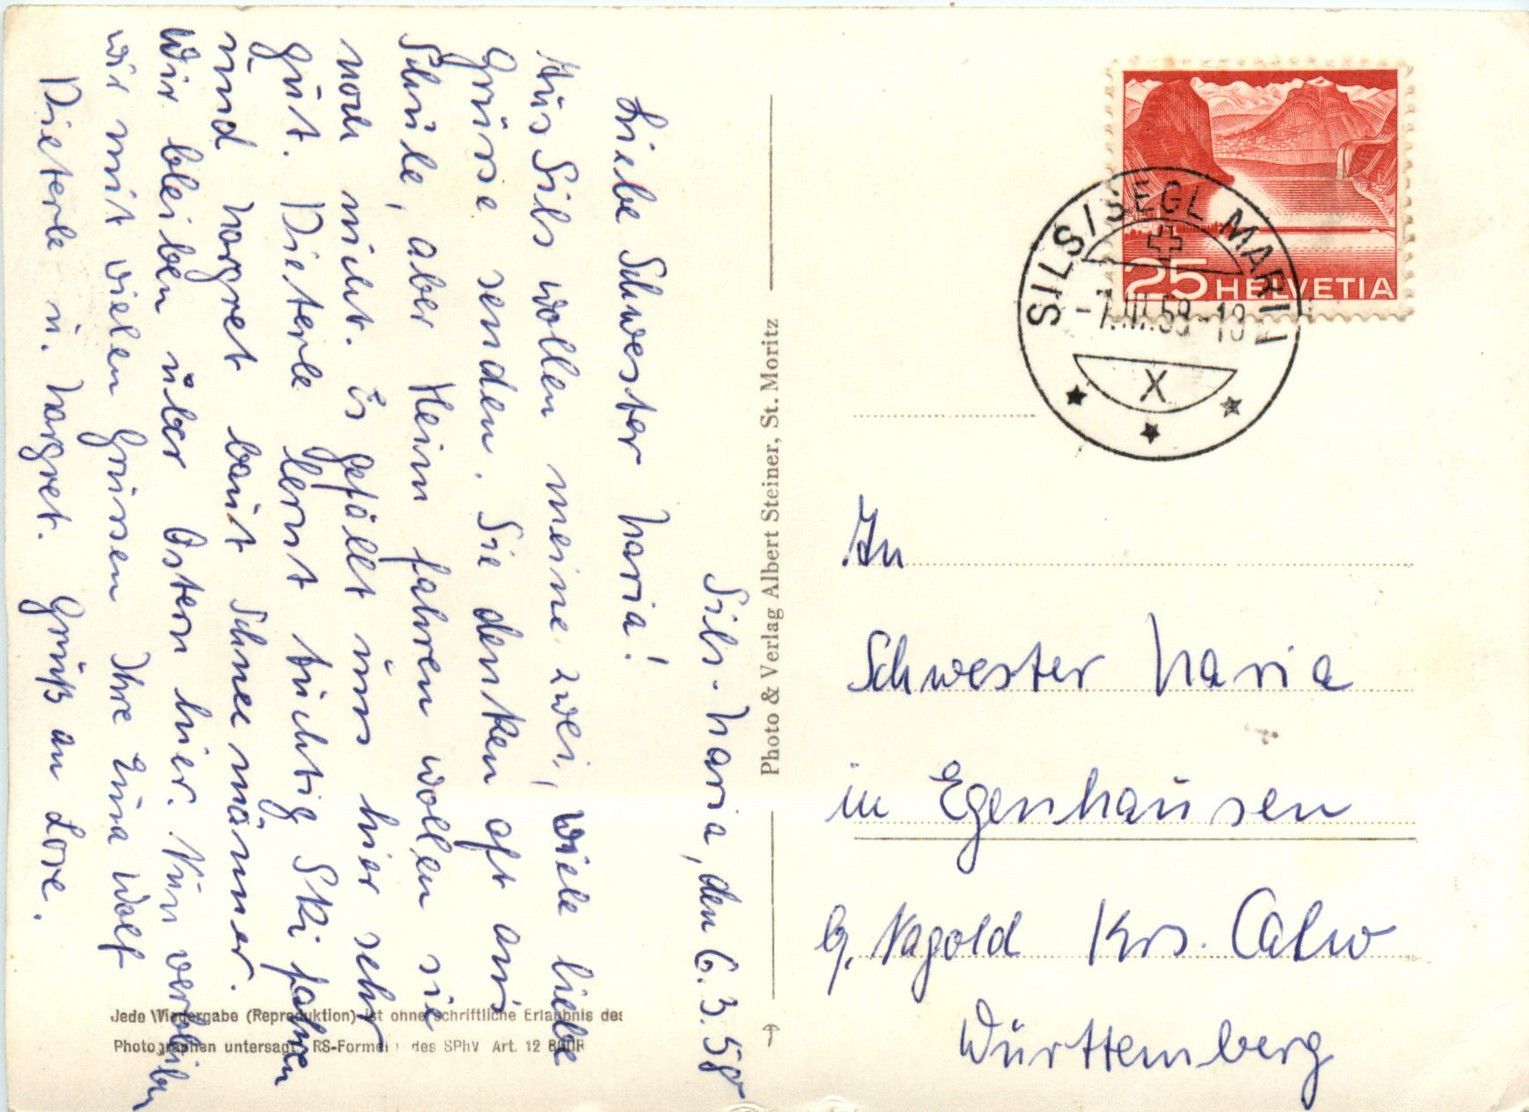 Sils-Maria, den 6.3.59
Liebe Schwester Maria!
Aus Sils wollen meine zwei, viele liebe
Grüsse senden. Sie denken oft ans
Schule, aber Heim fahren wollen sie
noch nicht. Es gefällt uns hier sehr
gut. Dieterle lernt tüchtig Ski fahren
und Margret baut Schneemänner.
Wir bleiben über Ostern hier. Nun verbleiben
wir mit vielen Grüssen Ihre Erna Wolf
Dieterle u. Margret. Gruß an Lore.
Jede Wiedergabe (Reproduktion) ist ohne schriftliche Erlaubnis des
Photographen untersagt RS-Formel des SPhV Art. 12 BGUR
Photo & Verlag Albert Steiner, St. Moritz
25 HELVETIA
SILS/SEGL MARIA
-7.III.59-18
X
An
Schwester Maria
in Egenhausen
b. Nagold Krs. Calw
Württemberg